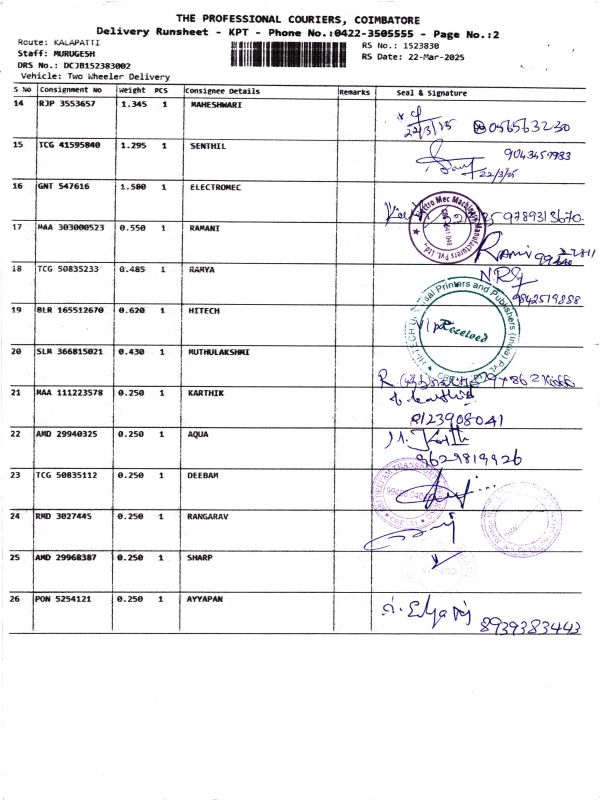 THE PROFESSIONAL COURIERS, COIMBATORE
Delivery Runsheet - KPT - Phone No.:0422-3505555 - Page No.:2
Route: KALAPATTI
Staff: MURUGESH
DRS No.: DCJB152383002
Vehicle: Two Wheeler Delivery
RS No.: 1523830
RS Date: 22-Mar-2025
S No Consignment No Weight PCS Consignee Details Remarks Seal & Signature
14 RJP 3553657 1.345 1 MAHESHWARI
22/3/25
15 TCG 41595840 1.295 1 SENTHIL
22/3/25
16 GNT 547616 1.580 1 ELECTROMEC
9789313670
17 MAA 303000523 0.550 1 RAMANI
Rami
18 TCG 50835233 0.485 1 RAMYA
9842519888
19 BLR 165512670 0.620 1 HITECH
Received
20 SLM 366815021 0.430 1 MUTHULAKSHMI
21 MAA 111223578 0.250 1 KARTHIK
8123908041
22 AMD 29940325 0.250 1 AQUA
9629819926
23 TCG 50835112 0.250 1 DEEBAM
24 RMD 3027445 0.250 1 RANGARAV
25 AMD 29968387 0.250 1 SHARP
26 PON 5254121 0.250 1 AYYAPAN
8939383443